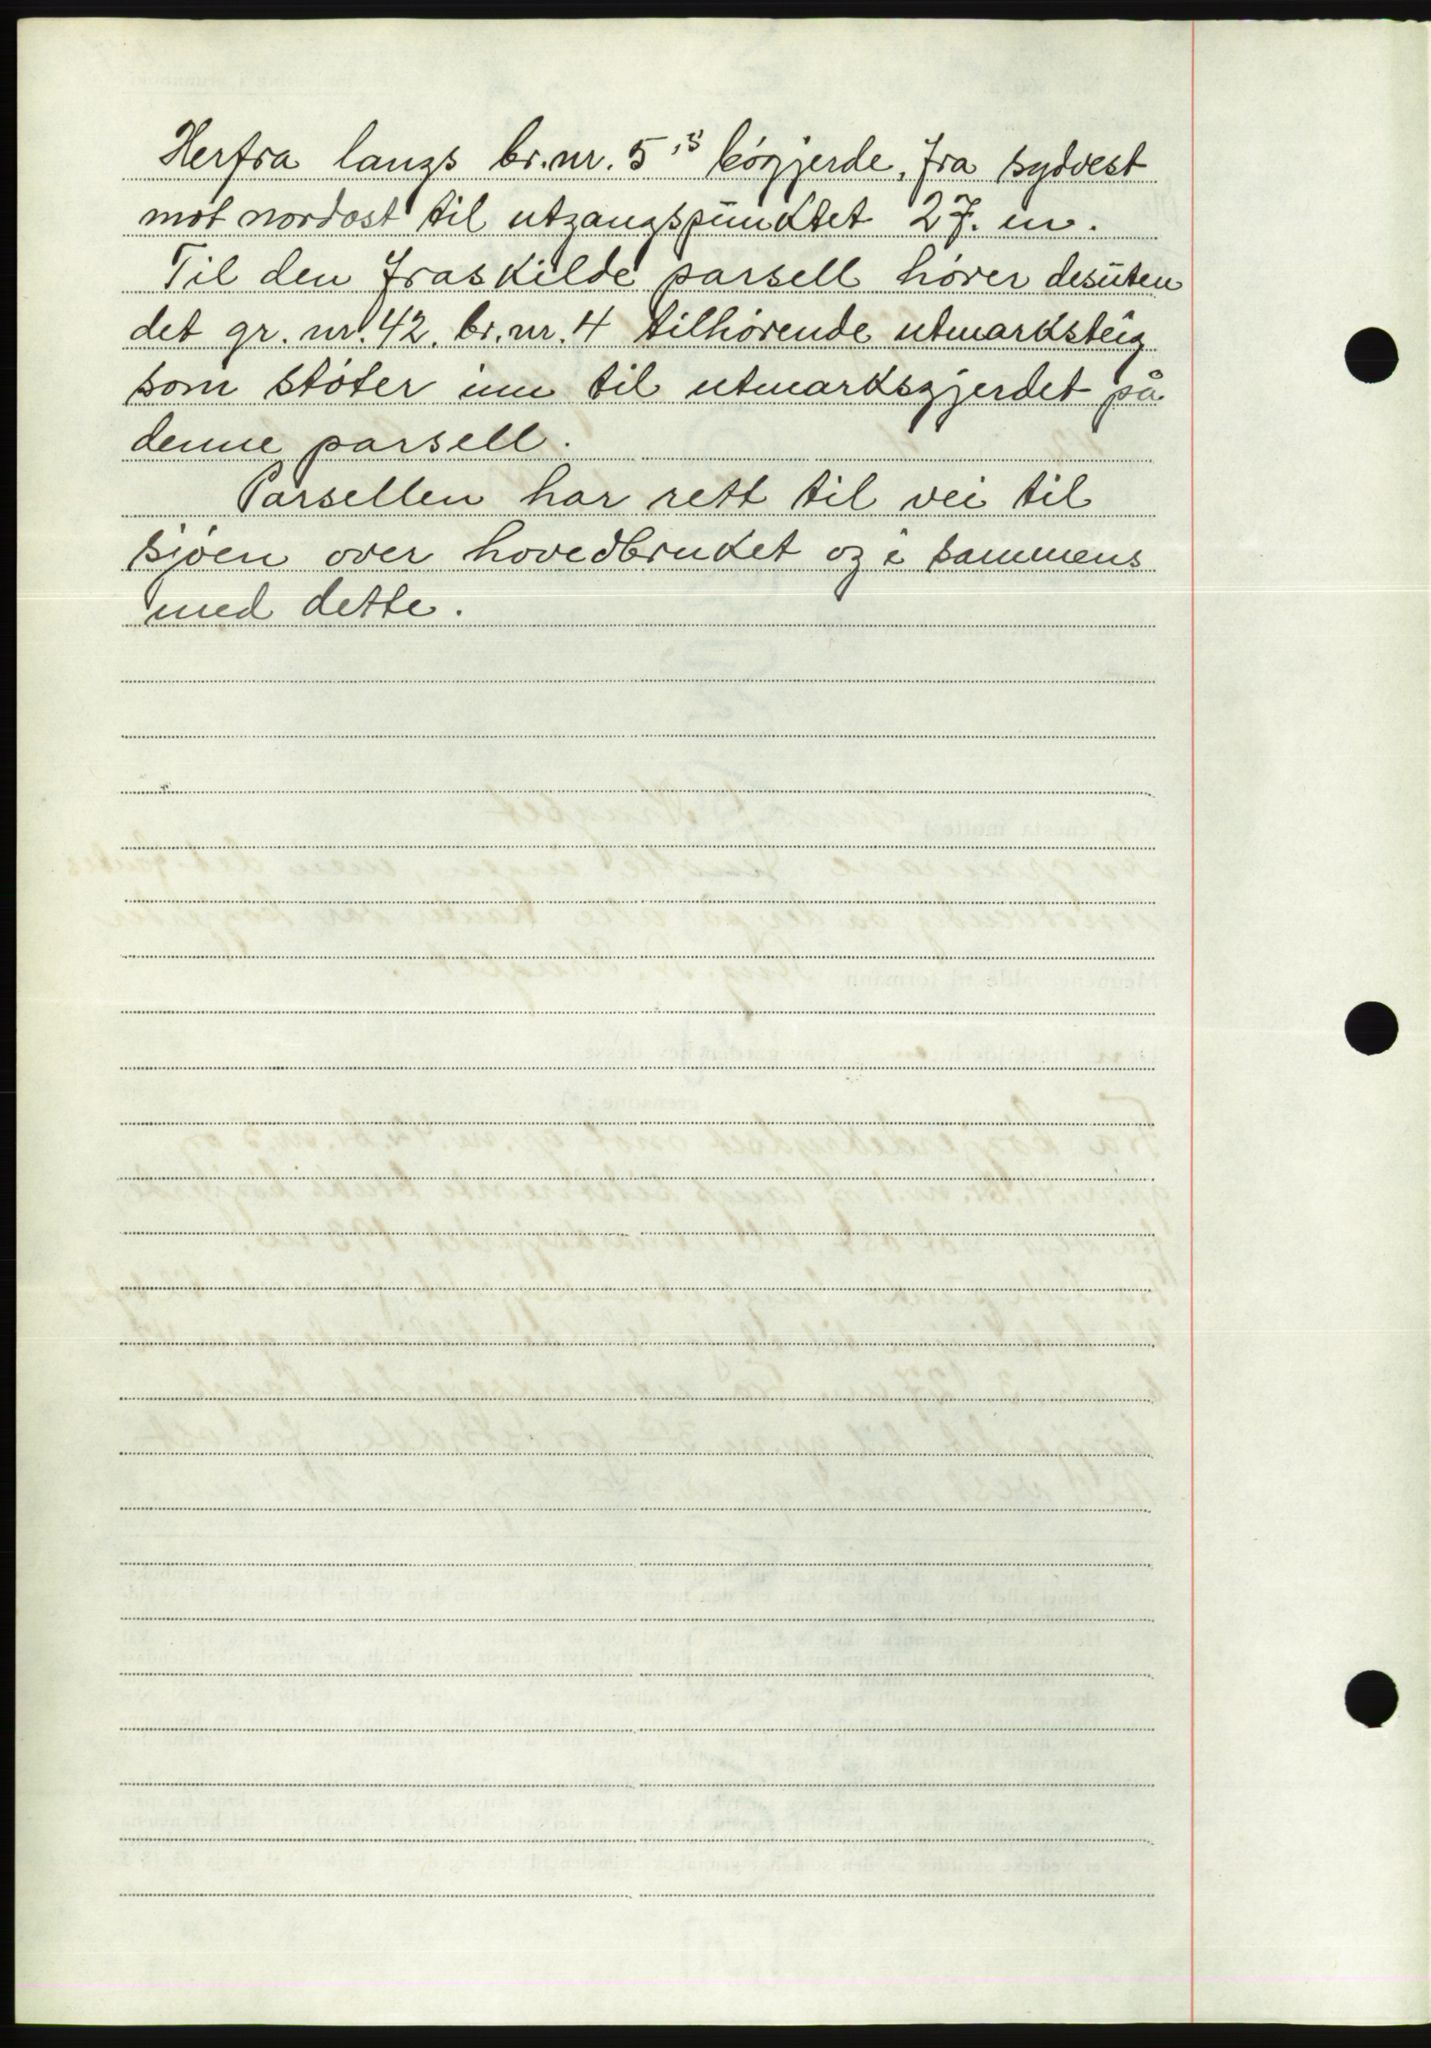 Herfra langs br.nr. 5's bøgjerde, fra sydvest
mot nordost til utgangspunktet 27. m.
Til den fraskilde parsell hører desuten
det gr. nr. 42. br. nr. 4 tilhørende utmarksteig
som støter inn til utmarksgjerdet på
denne parsell.
Parsellen har rett til vei til
sjøen over hovedbruket og i sammens
med dette.